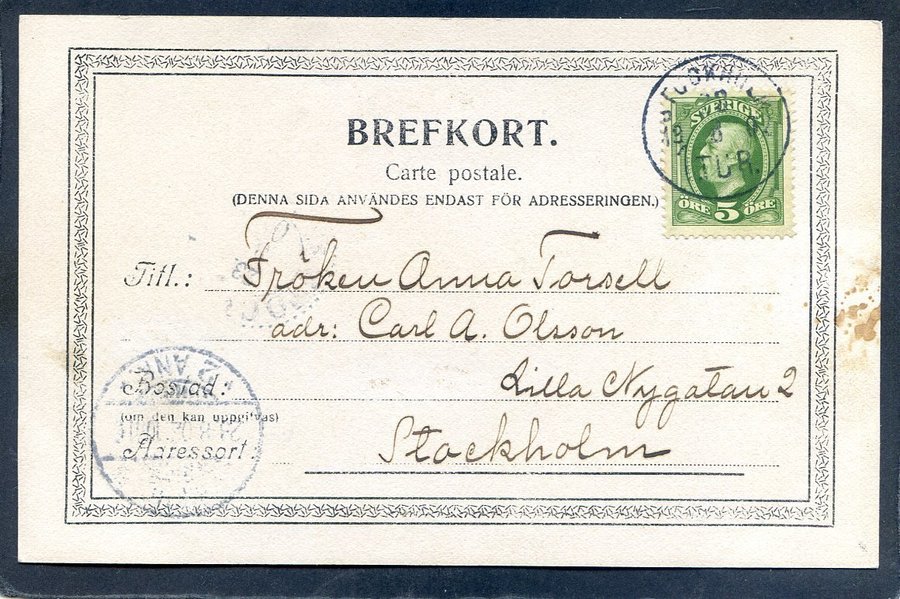 BREFKORT.
Carte postale.
(DENNA SIDA ANVÄNDES ENDAST FÖR ADRESSERINGEN.)
SVERIGE
ÖRE 5 ÖRE
TUR.
Titl.: Fröken Anna Torsell
adr: Carl A. Olsson
Bostad: Lilla Nygatan 2
(om den kan uppgifvas)
Adressort Stockholm